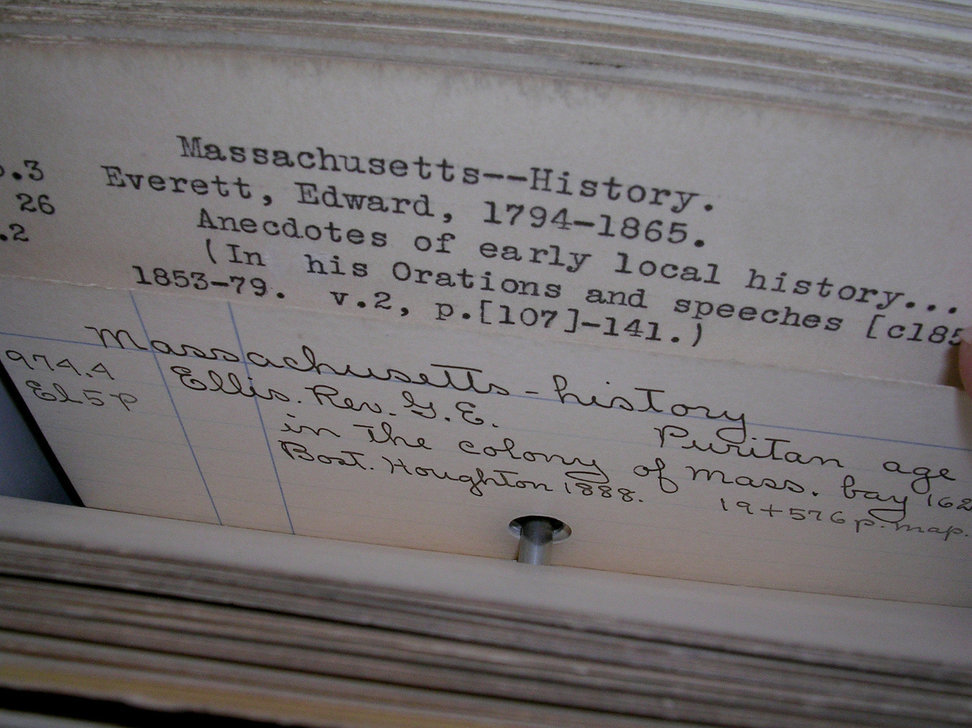 Massachusetts--History.
.3 Everett, Edward, 1794-1865.
26 Anecdotes of early local history...
.2 (In his Orations and speeches [c185
1853-79. v.2, p.[107]-141.)
Massachusetts-history
974.4 Ellis. Rev. G. E. Puritan age
El5p in the colony of Mass. bay 162
Bost. Houghton 1888. 19+576 p. map.